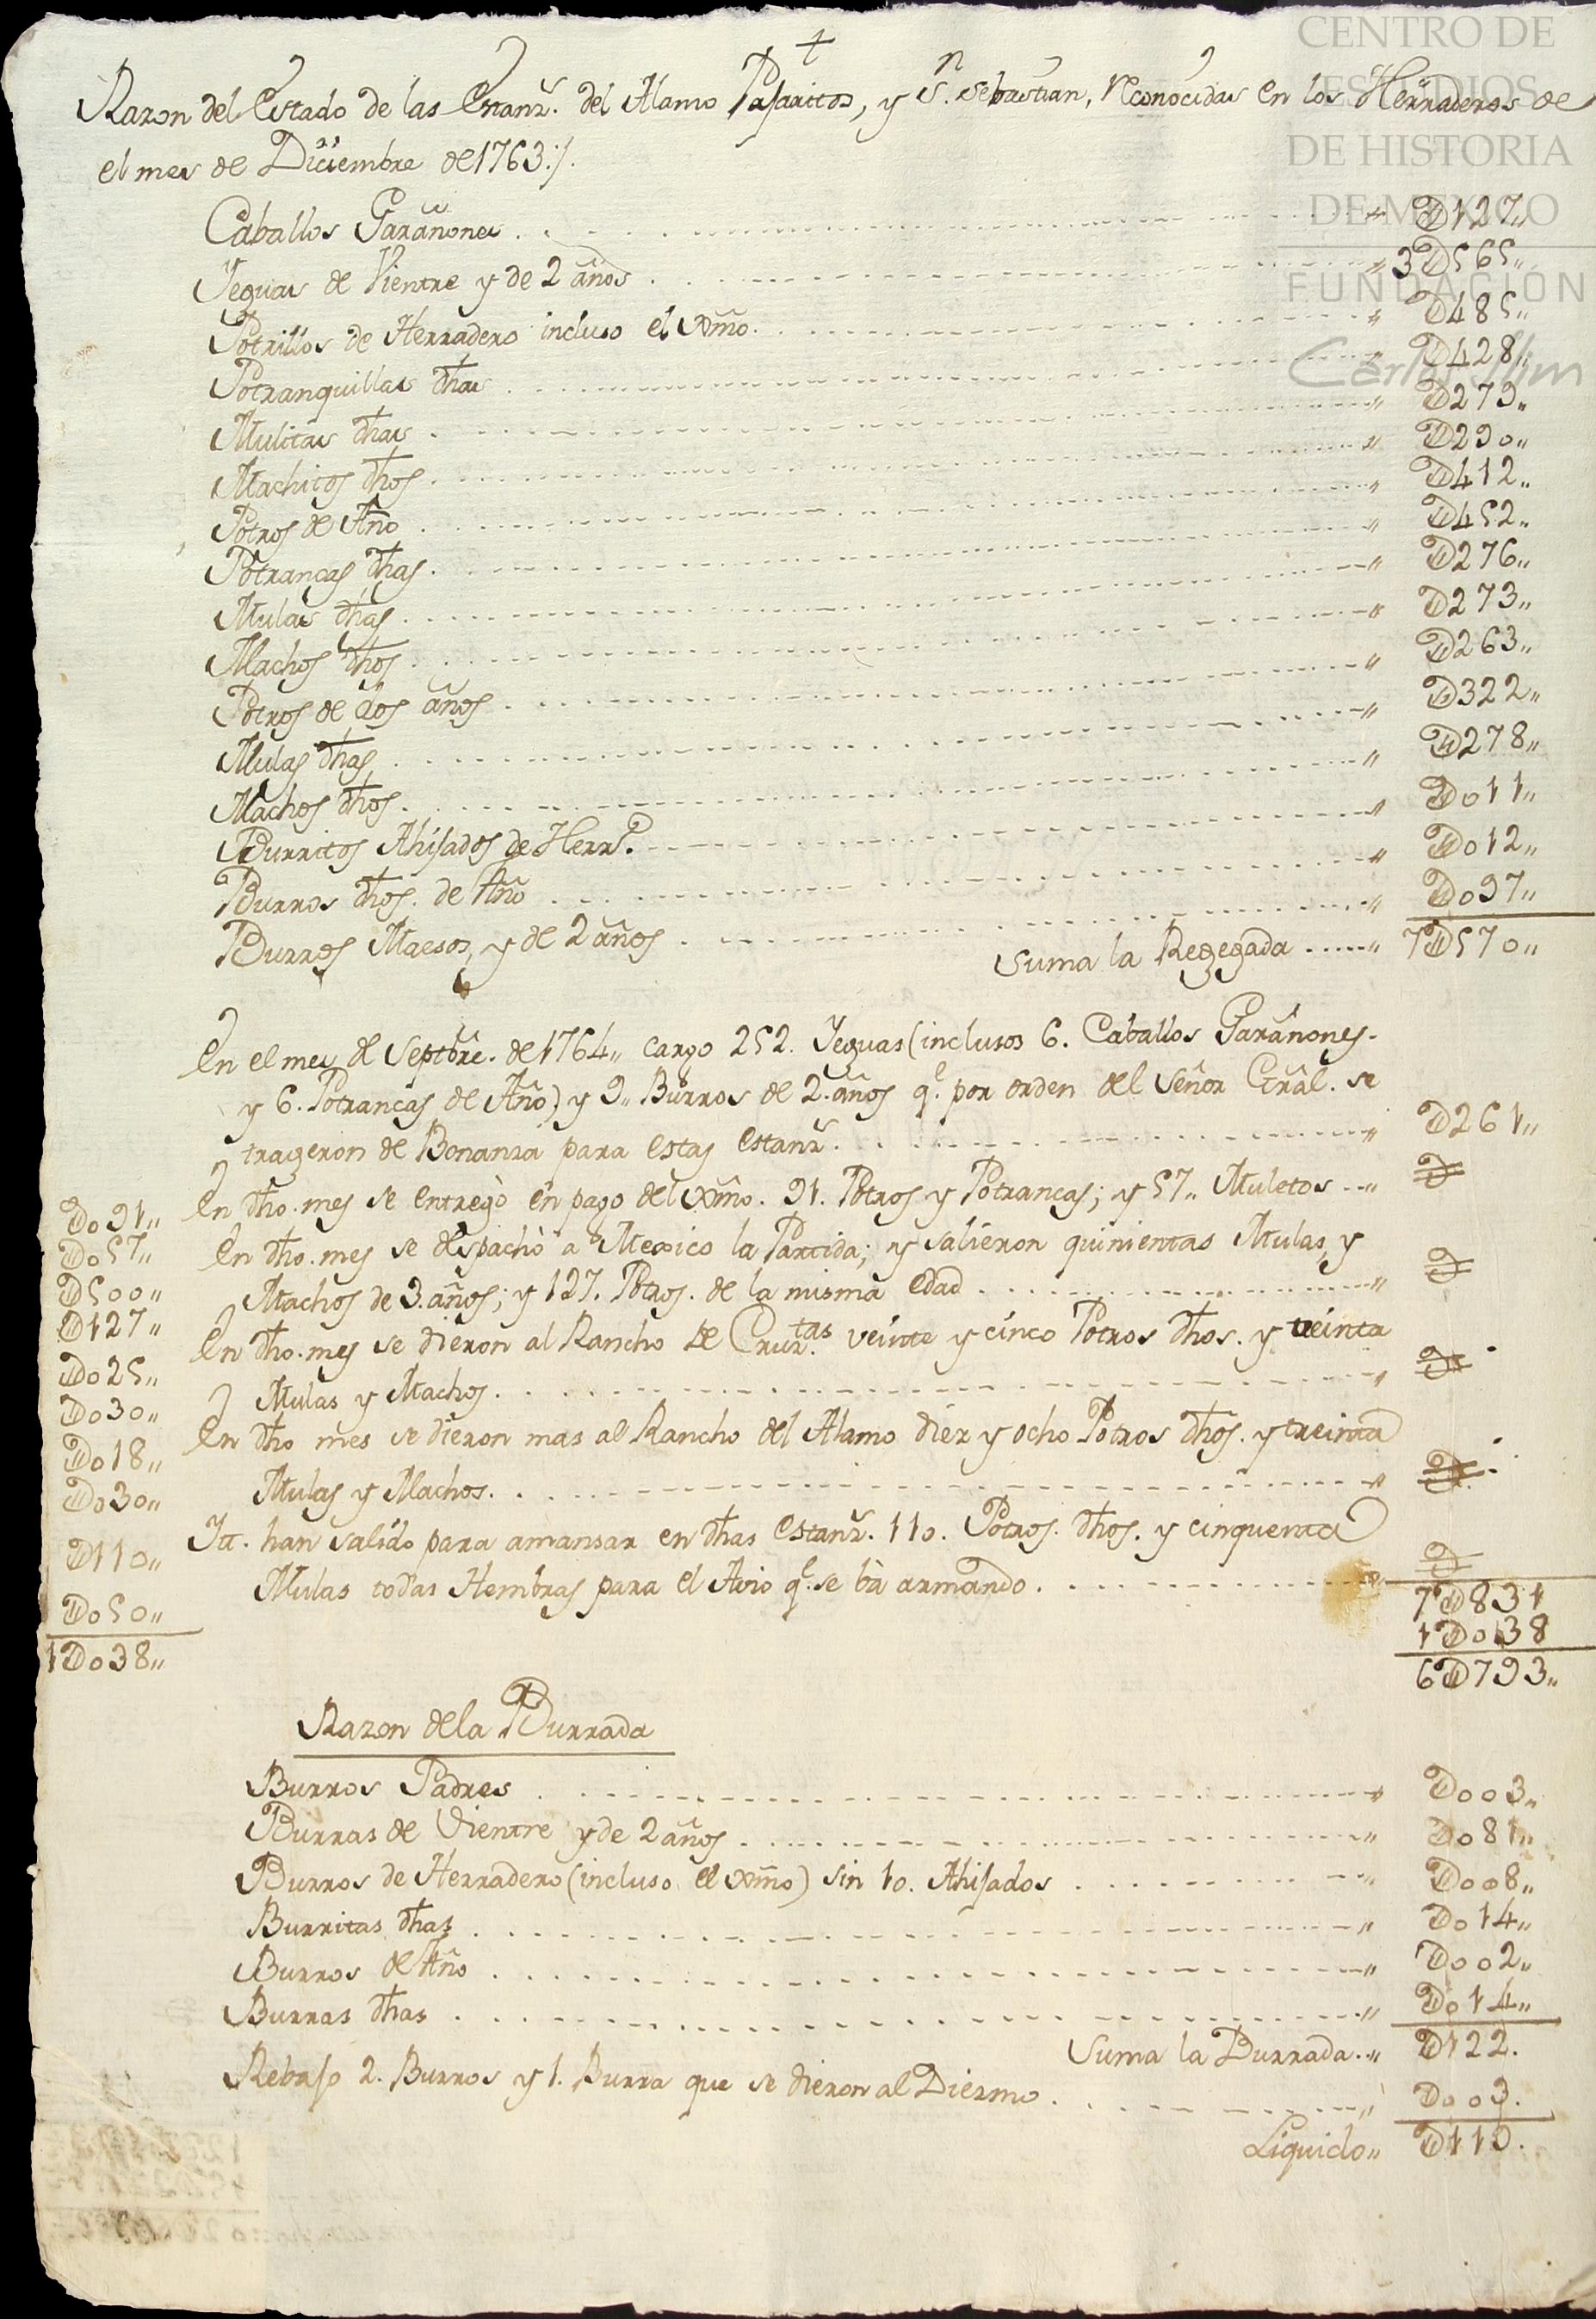 +
Razon del Estado de las Estanz.s del Alamo Pajaritos, y S.n Sebastian, reconocidas en los Herraderos de
el mes de Diciembre de 1763 ./.
Caballos Garañones . . . . . " D127"
Yeguas de Vientre y de 2 años . . . . . " 3D565"
Potrillos de Herradero incluso el Xmo. . . . . " D485"
Potranquillas dhas . . . . . " D428"
Mulitas dhas . . . . . " D279"
Machitos dhos . . . . . " D290"
Potros de Año . . . . . " D412"
Potrancas dhas . . . . . " D452"
Mulas dhas . . . . . " D276"
Machos dhos . . . . . " D273"
Potros de dos años . . . . . " D263"
Mulas dhas . . . . . " D322"
Machos dhos . . . . . " D278"
Burritos Ahijados de Herr.o . . . . . " D011"
Burros dhos. de Año . . . . . " D012"
Burros Maesos, y de 2 años . . . . . " D097"
Suma la Regegada . . . . . " 7D570"
En el mes de Septbre. de 1764" cargo 252. Yeguas (inclusos 6. Caballos Garañones.
y 6. Potrancas de Año) y 9" Burros de 2. años q.e por orden del Señor Gral. se
trageron de Bonanza para estas Estanz.s . . . . . " D261"
En dho. mes se entregò en pago del Xmo. 91. Potros y Potrancas; y 57" Muletos . . " D
D091"
D057"
En dho. mes se despachò a Mexico la Partida; y salieron quinientas Mulas, y
Machos de 3. años; y 127. Potros. de la misma edad . . . . . " D
D500"
D127"
En dho. mes se dieron al Rancho de Cruz.tas veinte y cinco Potros dhos. y treinta
Mulas y Machos . . . . . " D
D025"
D030"
En dho mes se dieron mas al Rancho del Alamo diez y ocho Potros dhos. y treinta
Mulas y Machos . . . . . " D
D018"
D030"
It. han salido para amansar en dhas Estanz.s 110. Potros. dhos. y cinquenta
Mulas todas Hembras para el Avio q.e se bà armando . . . . . " D
D110"
D050"
1D038"
7D831
1D038
6D793"
Razon de la Burrada
Burros Padres . . . . . " D003"
Burras de Vientre y de 2 años . . . . . " D081"
Burros de Herradero (incluso el Xmo) sin 10. Ahijados . . . . . " D008"
Burritas dhas . . . . . " D014"
Burros de Año . . . . . " D002"
Burras dhas . . . . . " D014"
Suma la Burrada . . " D122.
Rebajo 2. Burros y 1. Burra que se dieron al Diezmo . . . . . " D003.
Liquido" D119.
CENTRO DE
ESTUDIOS
DE HISTORIA
DE MEXICO
FUNDACIÓN
Carlos Slim